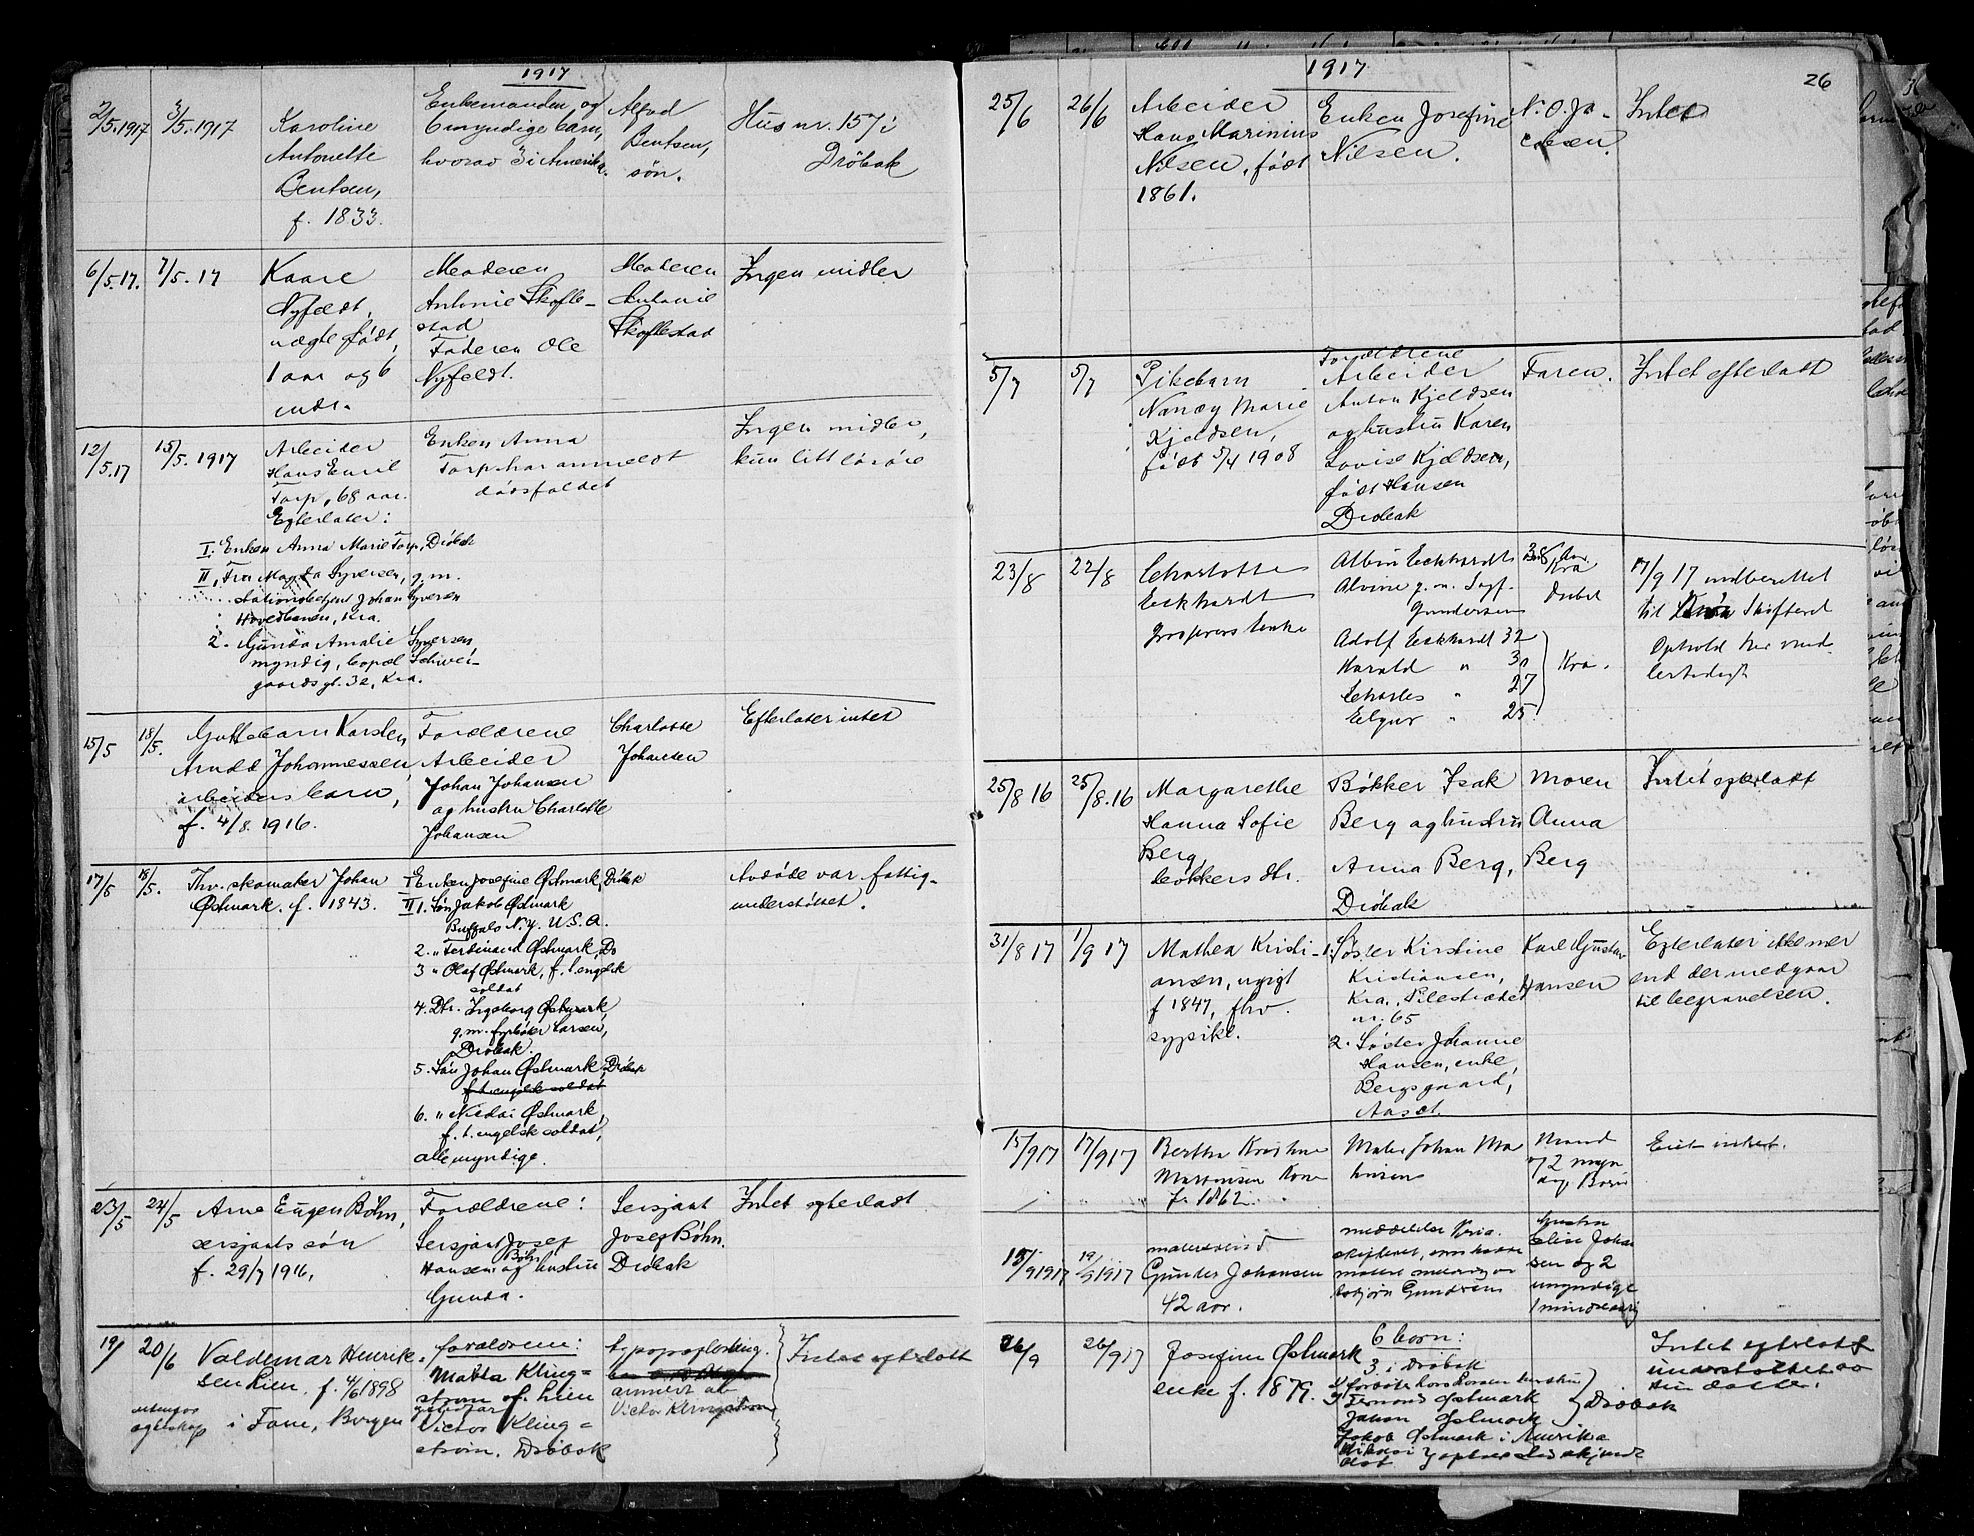 1917
2/5.1917
3/5.1917
Karoline
Antonette
Bentsen,
f. 1833.
Enkemanden og
6 myndige barn,
hvorav 3 i Amerika.
Bentsen,
søn.
Hus nr. 157 i
Drøbak
6/5.17.
7/5.17
Kaare
Nyfeldt,
uægte født,
1 aar og 6
mdr.
Moderen
Antonie Skofle-
stad
Faderen Ole
Nyfeldt.
Moderen
Antonie
Skoflestad
Ingen midler
12/5.17
15/5.1917
Arbeider
Hans Emil
Torp, 68 aar.
Efterlater:
I. Enken Anna Marie Torp, Drøbak
II, Fru Magda Syversen, g.m.
stationsbetjent Johan Syversen
Hovedbanen, Kra.
2. Gunda Amalie Syversen
myndig, bopæl Schwei-
gaardsgt. 32, Kra.
Enken Anna
Torp har anmeldt
dødsfaldet
Ingen midler,
kun litt løsøre
15/5
18/5.
Guttebarn Karsten
Arndt Johannessen,
arbeiders barn,
f. 4/8. 1916.
Forældrene
Arbeider
Johan Johansen
og hustru Charlotte
Johansen
Charlotte
Johansen
Efterlater intet
17/5
18/5.
Fhv. skomaker Johan
Østmark. f. 1843.
I Enken Josefine Østmark, Drøbak
II 1. Søn Jakob Østmark
Buffalo N.Y. U.S.A.
2. " Ferdinand Østmark, Do
3 " Olaf Østmark, f. t. engelsk
soldat
4. Dtr. Ingeborg Østmark,
g.m. fyrbøter Larsen,
Drøbak.
5. Søn Johan Østmark, Drøbak
f. t. engelsk soldat
6. " Nicolai Østmark,
f. t. engelsk soldat,
alle myndige.
Avdøde var fattig-
understøttet.
23/5
24/5
Arne Eugen Bøhn,
sersjants søn
f. 29/7 1916,
Forældrene:
Sersjant Josef
Bøhn
Hansen og hustru
Gunda.
Sersjant
Josef Bøhn.
Drøbak
Intet efterladt
19/
20/6
Valdemar Henrik-
sen Lien, f. 4/6 1898
i Fane, Bergen
forældrene:
Matta Kling-
strøm f. Lien
Victor Kling-
strøm. Drøbak
anmeldt av
Victor Klingstrøm
Intet efterlatt
1917
26
25/6
26/6
Arbeider
Hans Marinius
Nilsen, født
1861.
Enken Josefine
Nilsen.
N. O. Ja-
cobsen.
Intet
5/7
5/7
Pikebarn
Nancy Marie
Kjeldsen,
født 5/4 1908
Forældrene
Arbeider
Anton Kjeldsen
og hustru Karen
Lovise Kjeldsen,
født Hansen
Drøbak
Faren.
Intet efterladt
23/8
22/8
Charlotte
Eckhardt
Albin Eckhardt
Alvine g.m. Sigf.
Gundersen
Adolf Eckhardt 32
Harald " 30
Charles " 27
" 25
38 Aar
Kra
Kra.
17/9 17 indberettet
til Skifteret
Ophold her mid-
lertidigt
25/8 16
25/8.16
Margarethe
Hanna Sofie
Berg,
bøkkers dtr.
Bøkker Isak
Berg og hustru
Anna Berg,
Drøbak
Moren
Anna
Berg
Intet efterladt
31/8 17
1/9 17
Mathea Kristi-
ansen, ugift
f 1847, fhv.
sypike.
1. Søster Kirstine
Kristiansen,
Kra., Pilestrædet
nr. 65
2. Søster Johanne
Hansen, enke
Bergsgaard,
Aas
Karl Gustav
Hansen
Efterlater ikke mer
end der medgaar
til begravelsen.
15/9 17
17/9 17
Bertha Kristine
Martinsen Kone
f. 1862.
Maler Johan Mar
tinsen
Mand
og 2 myn
dig Børn
Eier intet.
15/9 1917
19/9 1917
Gunder Johansen
42 aar.
meddelelse Kria.
skifteret, som hadde
mottat melding av
Gundersen
hustru
Elise Johan
sen og 2
umyndige
1 mindreaarig
26/9
26/9 17
Josefine Østmark
enke f. 1879.
6 born:
3 i Drøbak
Johan Østmark
Drøbak
Jakob Østmark i Amerika
Nikolai
Olaf
Intet efterlatt
understøttet av
sin datter.